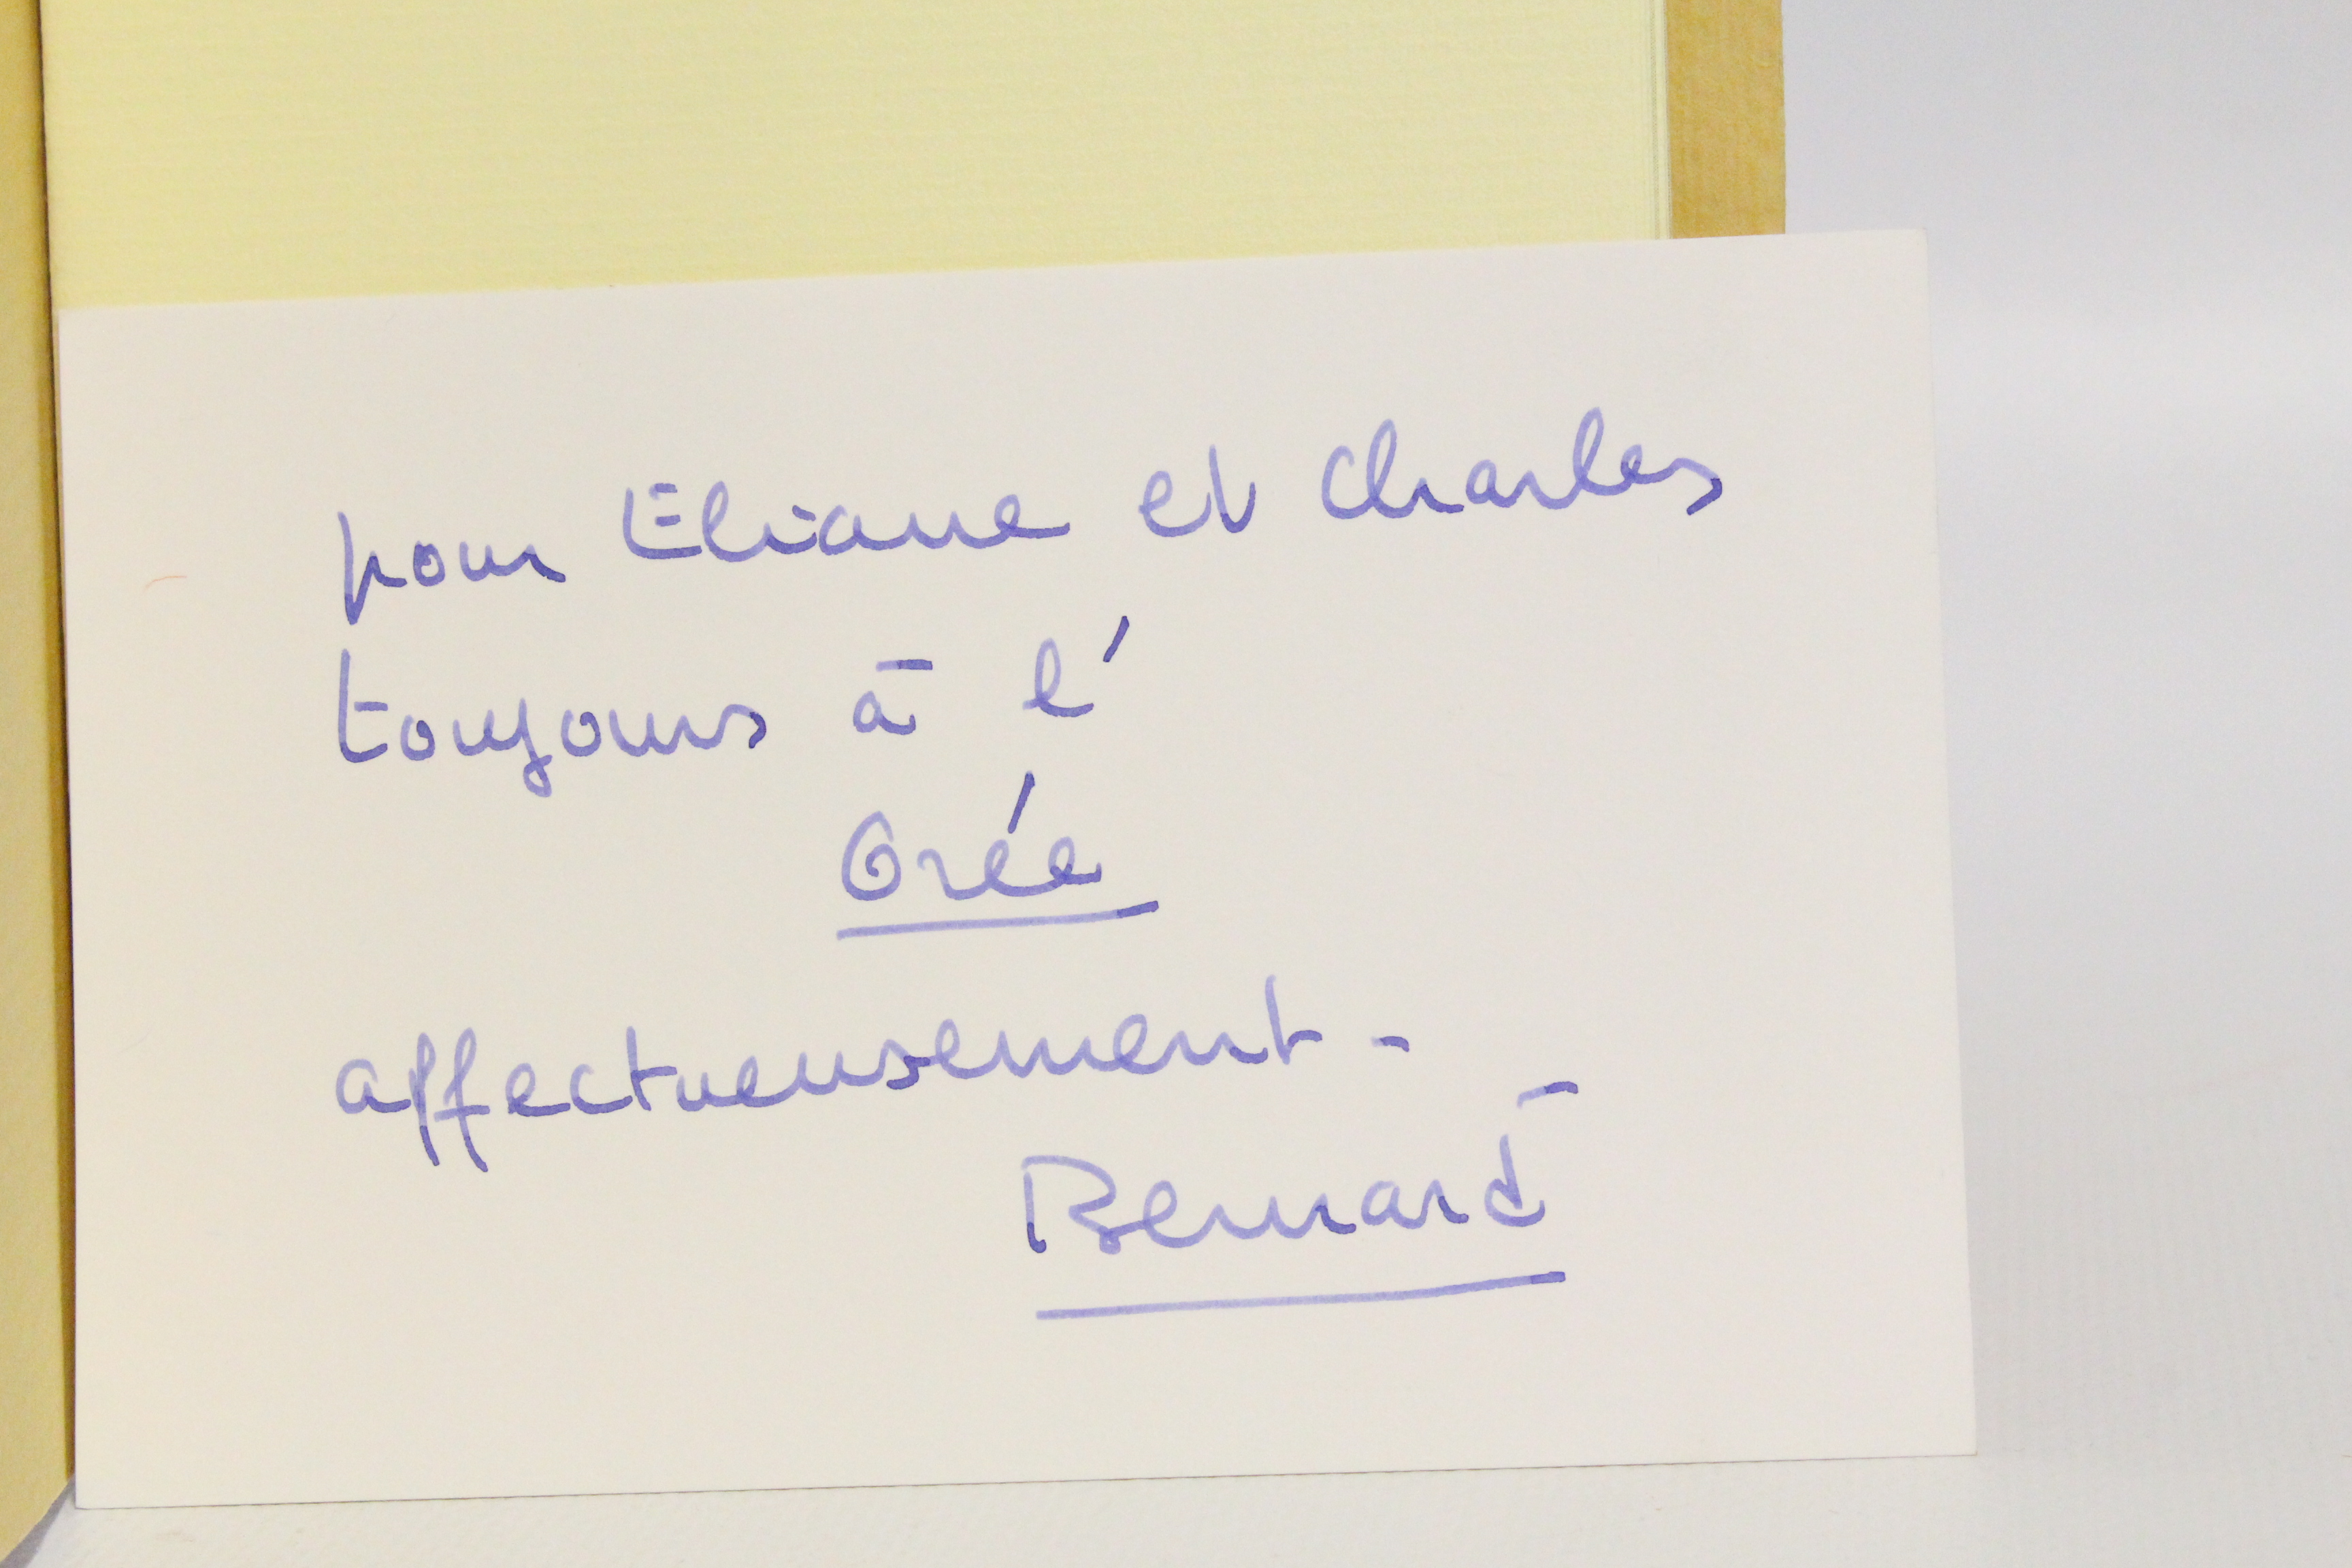 pour Eliane et Charles
toujours à l'
Orée
affectueusement -
Bernard